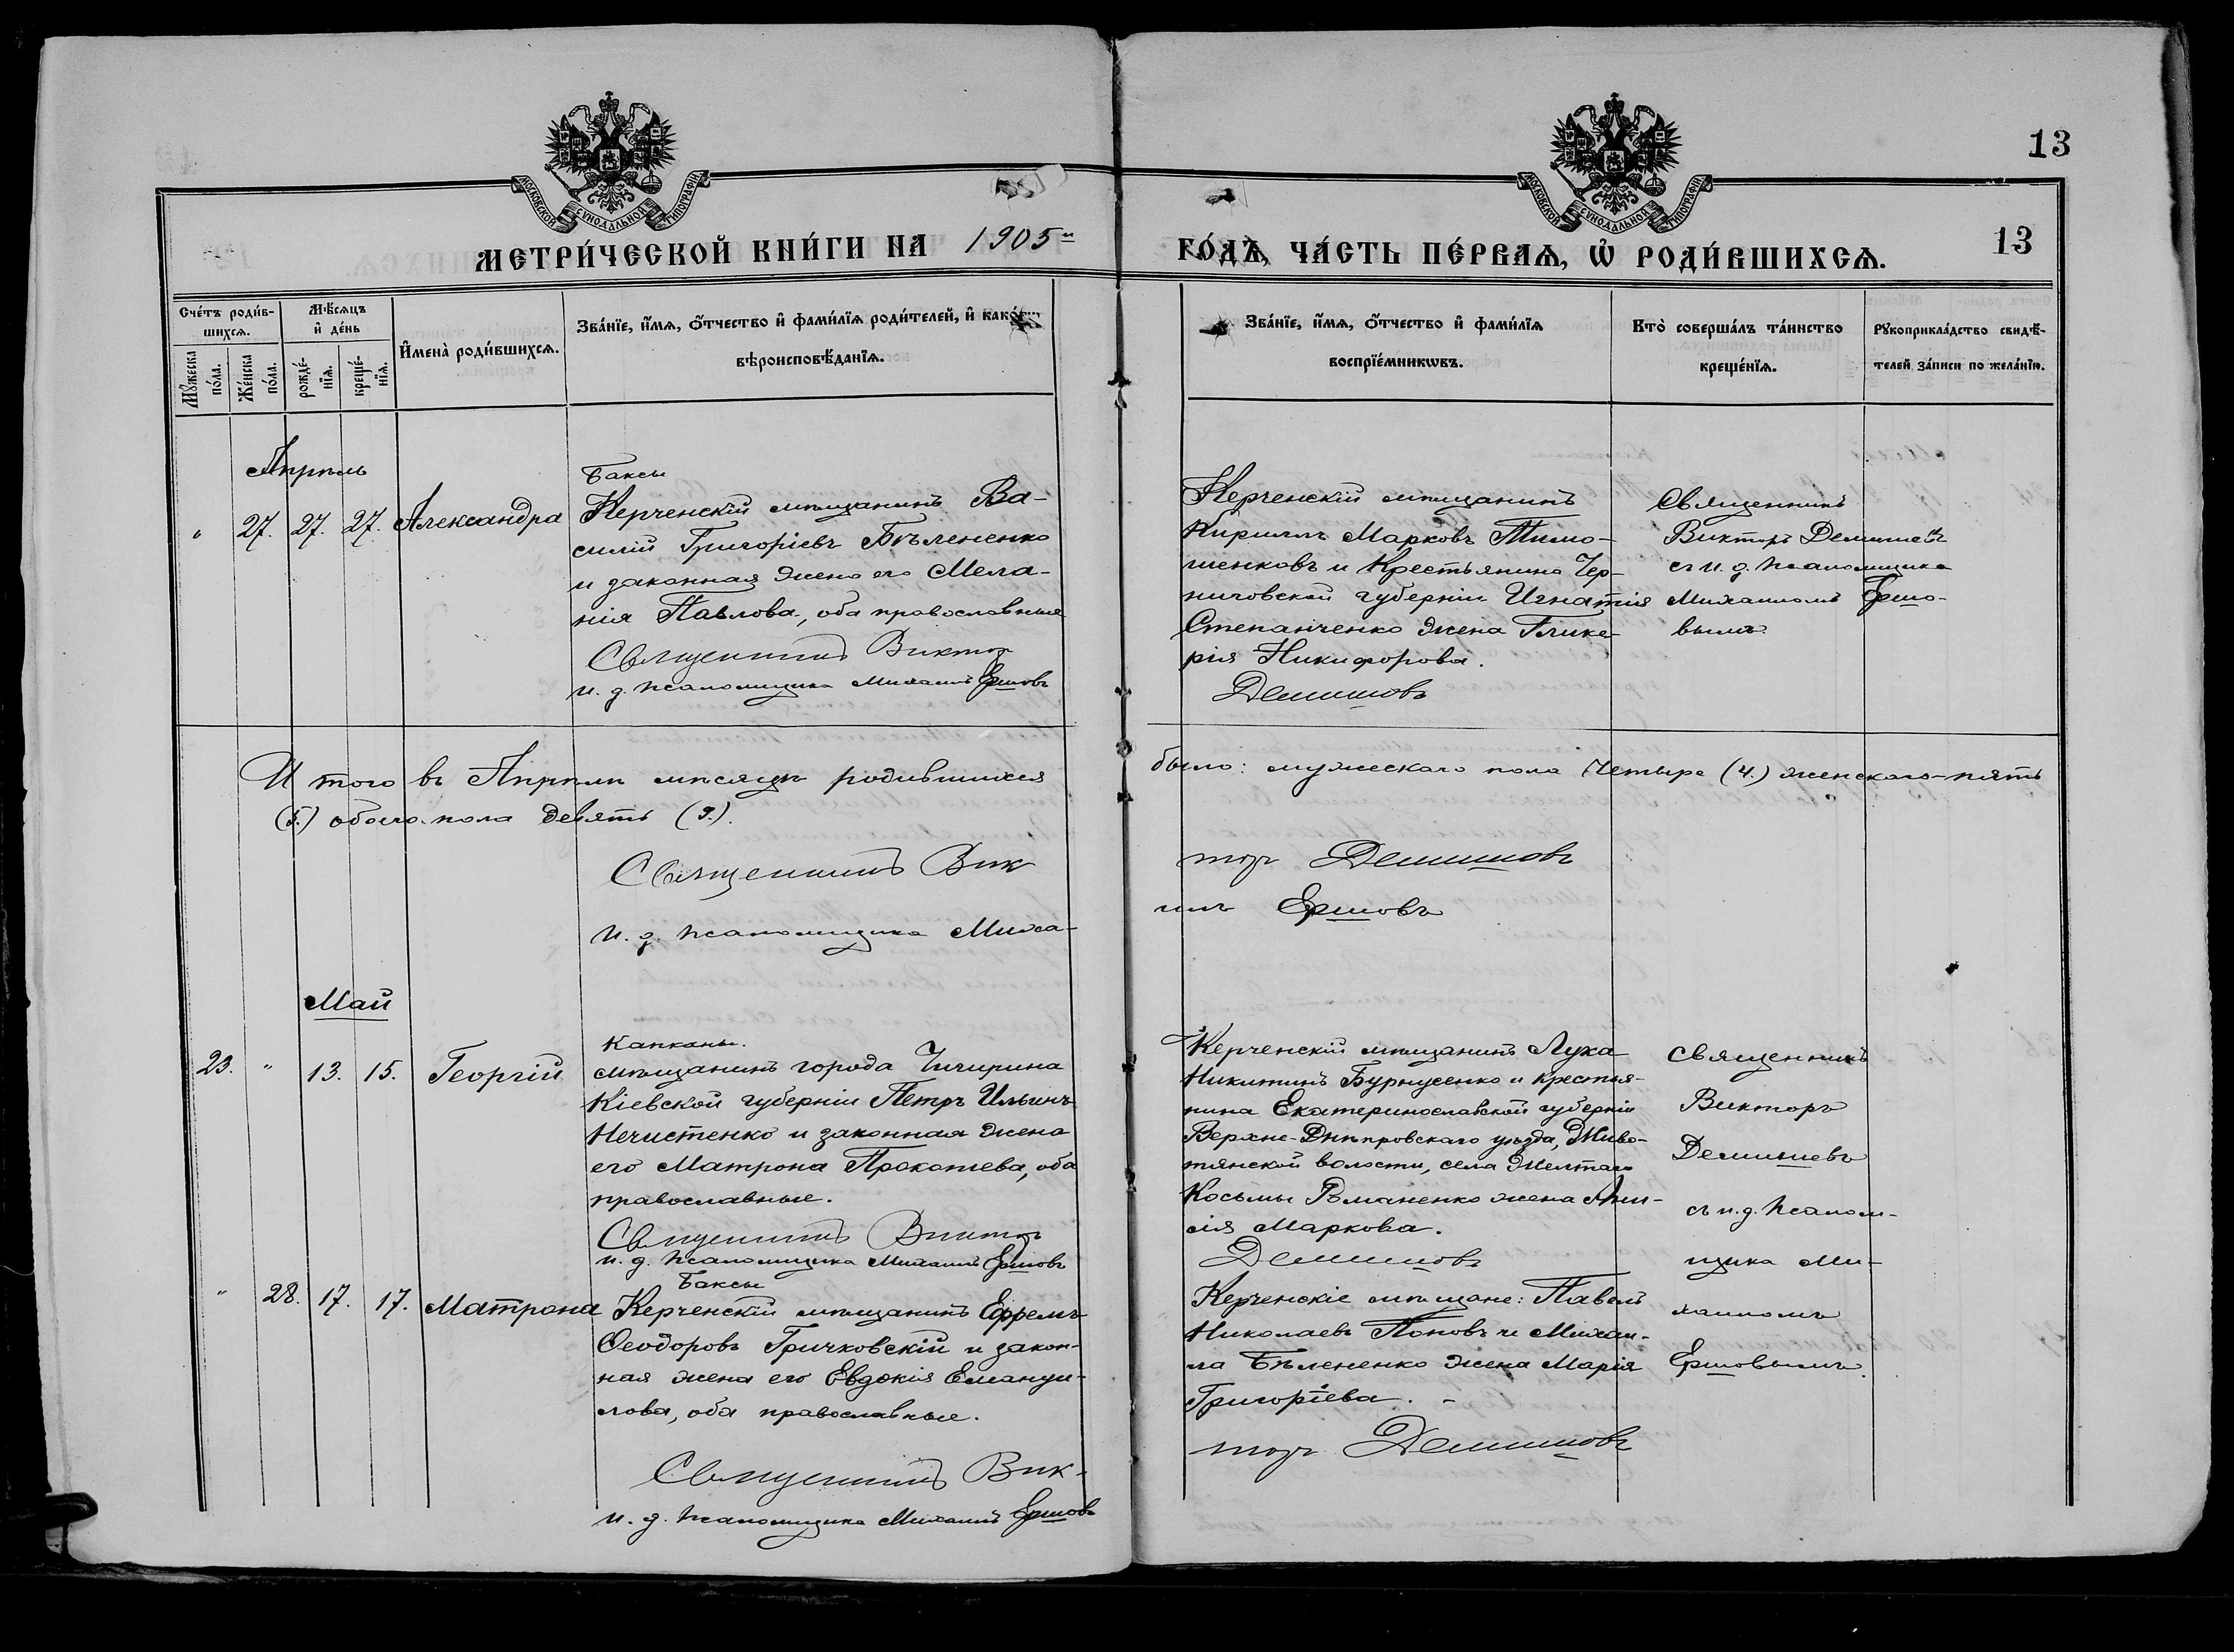 13
МОСКОВСКОЙ СѴНОДАЛЬНОЙ ТИПОГРАФІИ
МОСКОВСКОЙ СѴНОДАЛЬНОЙ ТИПОГРАФІИ
МЕТРИ́ЧЕСКОЙ КНИ́ГИ НА 1905й
ГО́ДЪ, ЧА́СТЬ ПЕ́РВАѦ, Ѡ҆ РОДИ́ВШИХСѦ.
13
Сче́тъ роди́в-
шихсѧ.
Мѹ́жеска по́ла.
Же́нска по́ла.
Мѣ́сѧцъ
и҆ де́нь
рожде́-
нїѧ.
креще́-
нїѧ.
И҆мена̀ роди́вшихсѧ.
Зва́нїе, и҆́мѧ, ѻ҆́тчество и҆ фами́лїѧ роди́телей, и҆ како́гѡ
вѣроисповѣ́данїѧ.
Зва́нїе, и҆́мѧ, ѻ҆́тчество и҆ фами́лїѧ
воспрїе́мникѡвъ.
Кто̀ соверша́лъ та́инство
креще́нїѧ.
Рѹкоприкла́дство свидѣ́-
телей за́писи по жела́нїю.
Апрѣль
„ 27. 27. 27. Александра
Баксы
Керченскій мѣщанинъ Ва-
силій Григоріевъ Бѣлененко
и законная жена его Мела-
нія Павлова, оба православные
Священникъ Виктор
И. д. псаломщика Михаилъ Ершовъ
Керченскій мѣщанинъ
Кириллъ Марковъ Тимо-
шенковъ и Крестьянина Чер-
ниговской губерніи Игнатія
Степанченко жена Глике-
рія Никифорова.
Демишовъ
Священникъ
Викторъ Демишевъ
съ и. д. псаломщика
Михаиломъ Ершо-
вымъ
И того въ Апрѣлѣ мѣсяцѣ родившихся
было: мужескаго пола четыре (4.) женскаго - пять
(5.) обоего пола девять (9.).
Священникъ Вик
торъ Демишовъ
И. д. псаломщика Миха-
илъ Ершовъ
Май
23. „ 13. 15. Георгій
Капканы.
мѣщанинъ города Чигирина
Кіевской губерніи Петръ Ильинъ
Нечистенко и законная жена
его Матрона Прокопіева, оба
православные.
Священникъ Виктор
И. д. псаломщика Михаилъ Ершовъ
Керченскій мѣщанинъ Лука
Никитинъ Бурнусенко и крестья-
нина Екатеринославской губерніи
Верхне-Днѣпровскаго уѣзда,
волости, села Желтаго
Косьмы Романенко жена
Маркова.
Демишовъ
Священникъ
Викторъ
Демишевъ
съ и. д. псалом-
щика Ми-
хаиломъ
Ершовымъ.
„ 28. 17. 17. Матрона
Баксы
Керченскій мѣщанинъ Ефремъ
Ѳеодоровъ Гричковскій и закон-
ная жена его Евдокія Емануи-
лова, оба православные.
Священникъ Вик-
И. д. псаломщика Михаилъ Ершовъ
Керченскіе мѣщане: Павелъ
Николаевъ Поповъ и Михаи-
ла Бѣлененко жена Марія
Григоріева.
торъ Демишовъ